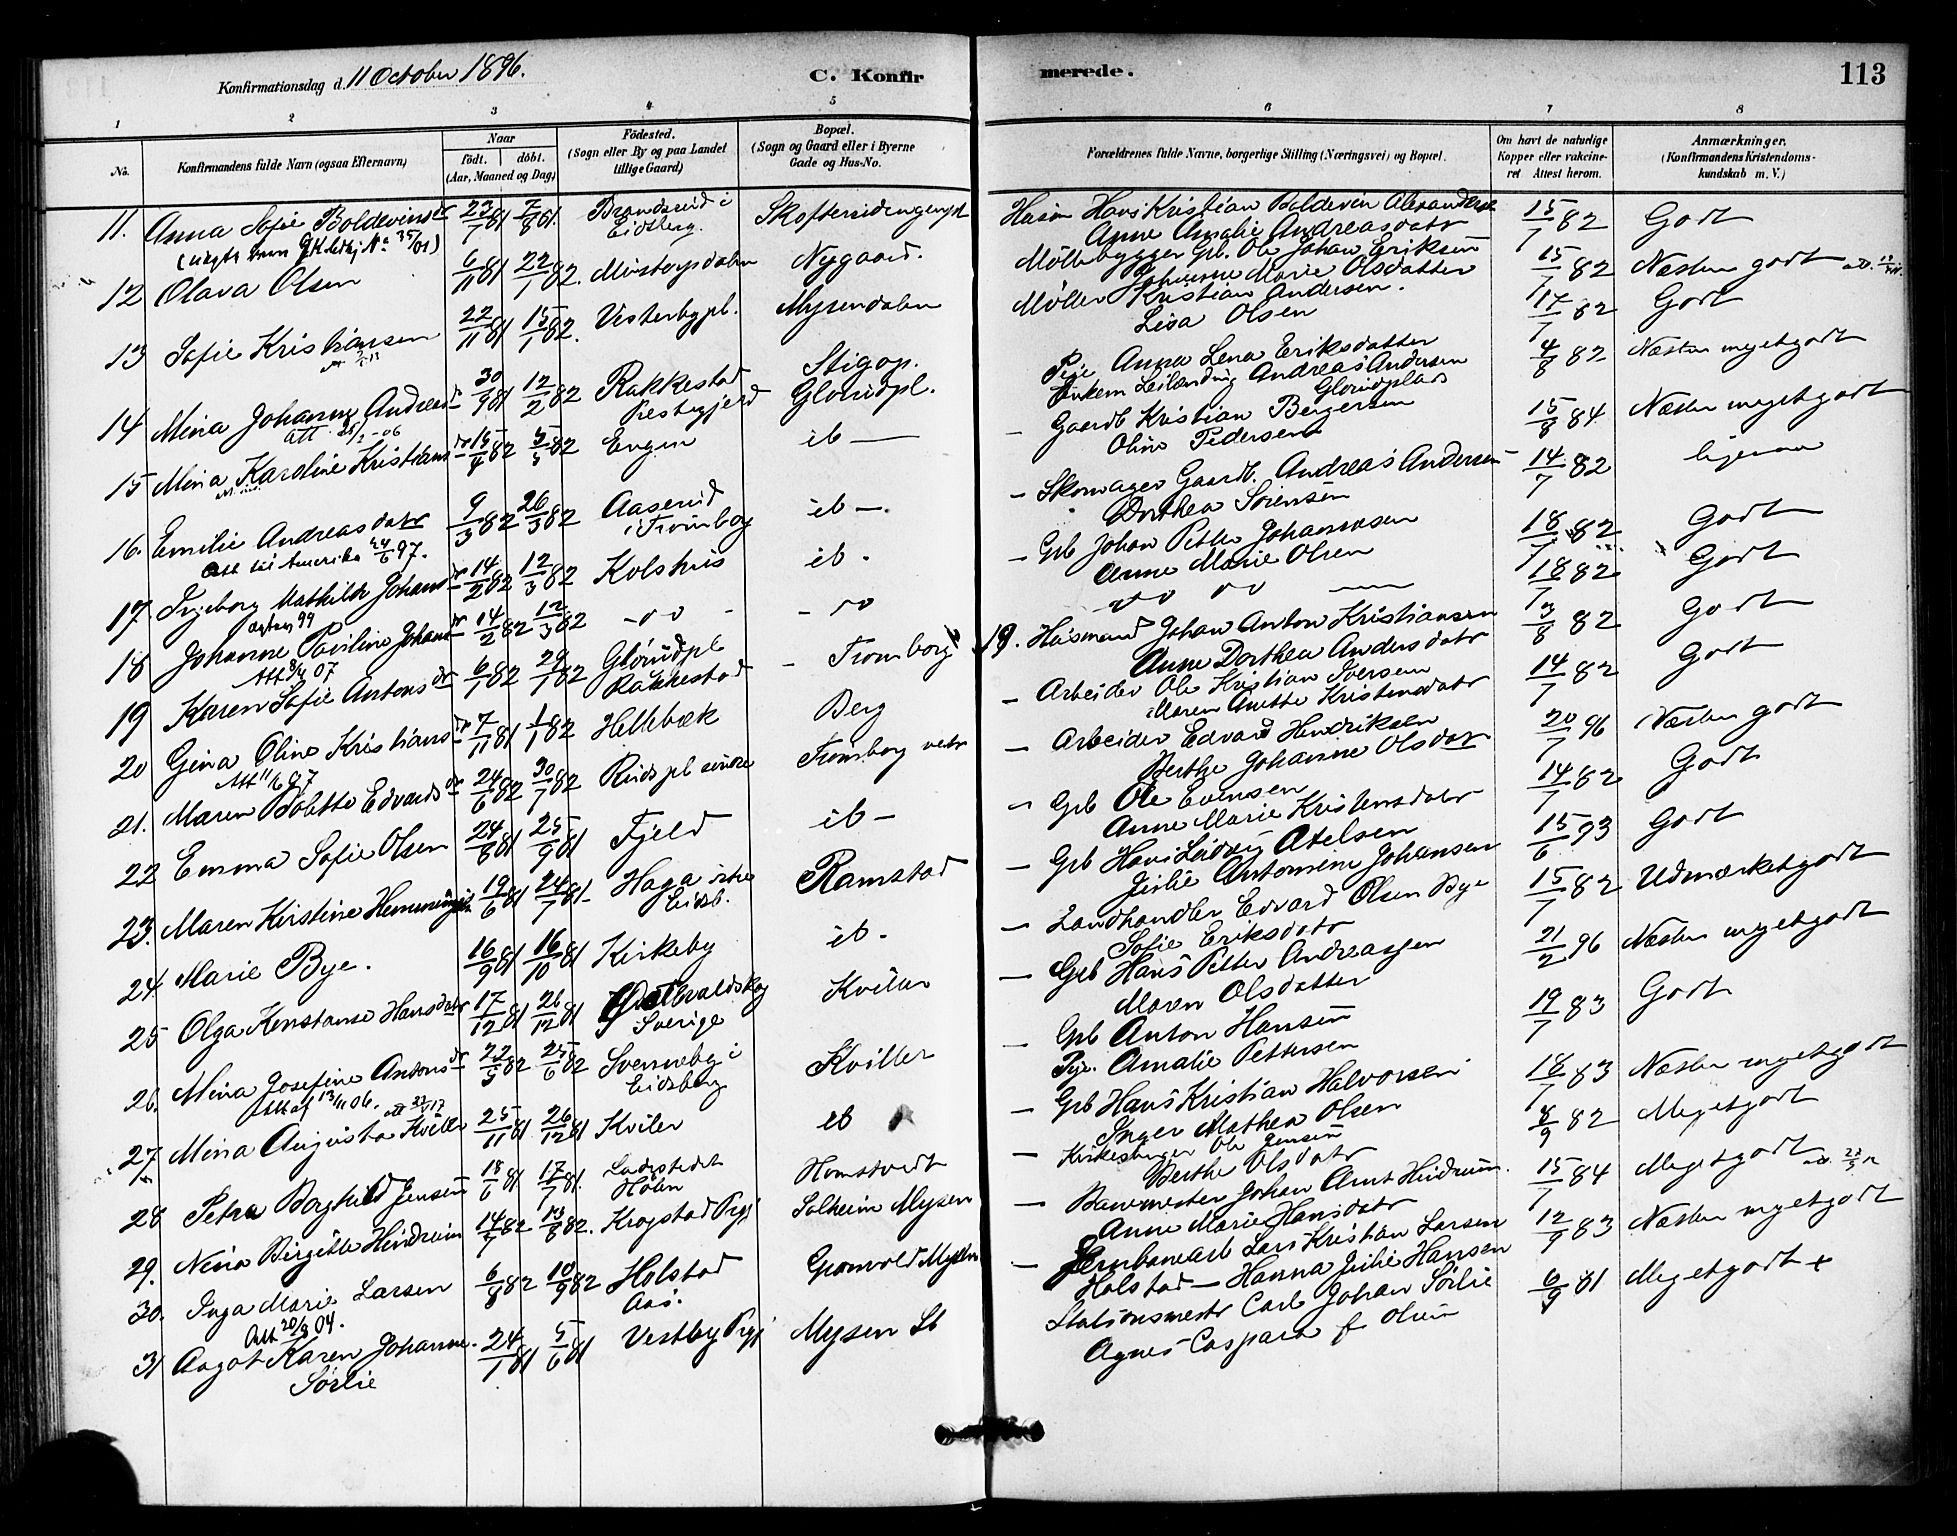 Konfirmationsdag d. 11 October 1896.
C. Konfirmerede.
113
1 2 3 4 5 6 7 8
No.
Konfirmandens fulde Navn (ogsaa Efternavn)
Naar
födt. döbt.
(Aar, Maaned og Dag)
Födested.
(Sogn eller By og paa Landet
tillige Gaard)
Bopæl.
(Sogn og Gaard eller i Byerne
Gade og Hus-No.
Forældrenes fulde Navne, borgerlige Stilling (Næringsvei) og Bopæl.
Om havt de naturlige
Kopper eller vakcine-
ret Attest herom.
Anmærkninger.
(Konfirmandens Kristendoms-
kundskab m. V.)
11. Anna Sofie Boldevinsdr 23/7 81 7/8 81. Brandsrud i Eidsberg. Hans Kristian Boldevin Alexandersen 15/7 82 Godt
Anne Amalie Andreasdatr
12 Olava Olsen 6/11 81 22/1 82. Nygaard. Möllebygger Grb. Ole Johan Eriksen 15/7 82 Næsten godt
Johanne Marie Olsdatter
13 Sofie Kristiansen 22/11 81 15/1 82. Vesterbypl. Mysendalen Möller Kristian Andersen. 17/7 82 Godt
Lisa Olsen
14 Mina Johanne Andreasdr 30/9 81 12/2 82 Rakkestad Præstegjeld Stigop. Glorudpl. Pige Anna Lena Eriksdatter 4/8 82 Næsten megetgodt
Andreas Andersen
Glorudplads
Att 28/2-06
15 Mina Karoline Kristiansdr 15/4 82 5/3 82 Engen ib — Gaardb Kristian Bergersen 15/8 84 Næsten megetgodt
Oline Pedersen
16. Emilie Andreasdatr 9/3 82 26/3 82 Aaserud i Tromborg ib —. — Skomager Gaardb. Andreas Andersen 14/7 82 ligesaa
Dorthea Sörensen
Att til Amerika 24/6 97.
17. Ingeborg Mathilde Johansdr 14/2 82 12/3 82 Kolshus ib. — Grb Johan Petter Johannesen 18/7 82 Godt
Anne Marie Olsen
18 Johanne Pauline Johansdr 14/2 82 12/3 82 18/7 82 Godt
19 Karen Sofie Antonsdr 6/1 82 29/1 82 Glorudpl Rakkestad — Tromborg 19. Husmand Johan Anton Kristiansen 3/8 82 Godt
Anne Dorthea Andersdatr
20 Gina Oline Kristiansdr 7/11 81 1/1 82 Hellebæk Berg — Arbeider Ole Kristian Iversen 14/7 82 Godt
Maren Anette Kristensdatr
Att 11/6 97
21. Maren Bolette Edvardsdr 24/6 82 30/7 82 Rudspl Tromborg — Arbeider Edvard Hendriksen 20/7 96 Næsten godt
Berthe Johanne Olsdatr
22 Emma Sofie Olsen 24/8 81 25/9 81 Fjeld ib — — Grb Ole Evensen 14/7 82 Godt
Anne Marie Kristensdatr
23. Maren Kirstine 19/6 81 24/7 81. Haga Eidsb. Ramstad — Grb 15/6 93 Godt
Julie Antonsene Johansen
24 Marie Bye. 16/9 81 16/10 81 Kirkeby ib. — Landhandler Edvard Olsen Bye 15/7 82 Udmærketgodt
Sofie Eriksdatr
25 Olga Konstanse Hansdatr 17/12 81 26/12 81 Sverige — Grb Hans Petter Andreassen 21/2 96 Næsten megetgodt
Maren Olsdatter
26. Mina Josefine Antonsdr 22/5 82 25/6 82 i Eidsberg Kviller — Grb Anton Hansen 19/7 83 Godt
Pige. Amalie Pettersen
27 Mina Augusta Kviller 25/11 81 26/12 81 Kviler ib — Grb Hans Kristian Halvorsen 18/7 83 Næsten megetgodt
Inger Mathea Olsen
28 Petra Borghild Jensen 18/6 81 17/7 81. Ladestedet Hölen Homstvedt — Kirkesanger Ole Jensen 8/9 82 Megetgodt
Berthe Olsdatr
29. Nina Birgitte Hindrum 14/7 82 13/8 82. Krogstad Prgj Solheim Mysen — Banemester Johan Arnt Hindrum. 15/7 84 Megetgodt
Anne Marie Hansdatr
30. Inga Marie Larsen 6/8 82 10/9 82 Holstad Aas. Mysen — Jernbanearb Lars Kristian Larsen 12/9 83 Næsten megetgodt
Holstad — Hanna Julie Hansen
Att 20/8 04.
31 Aagot Karen Johanne Sörlie 24/1 81 5/6 81 Vestby Prgj Mysen St Stationsmestr Carl Johan Sörlie 6/9 81 Megetgodt +
Agnes Caspara f Olsen